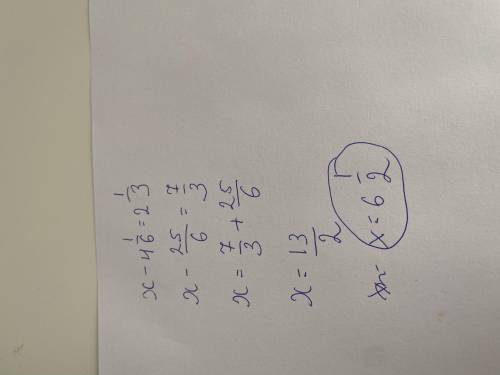 x - 4 1/6 = 2 1/3
x - 25/6 = 7/3
x = 7/3 + 25/6
x = 13/2
x = 6 1/2